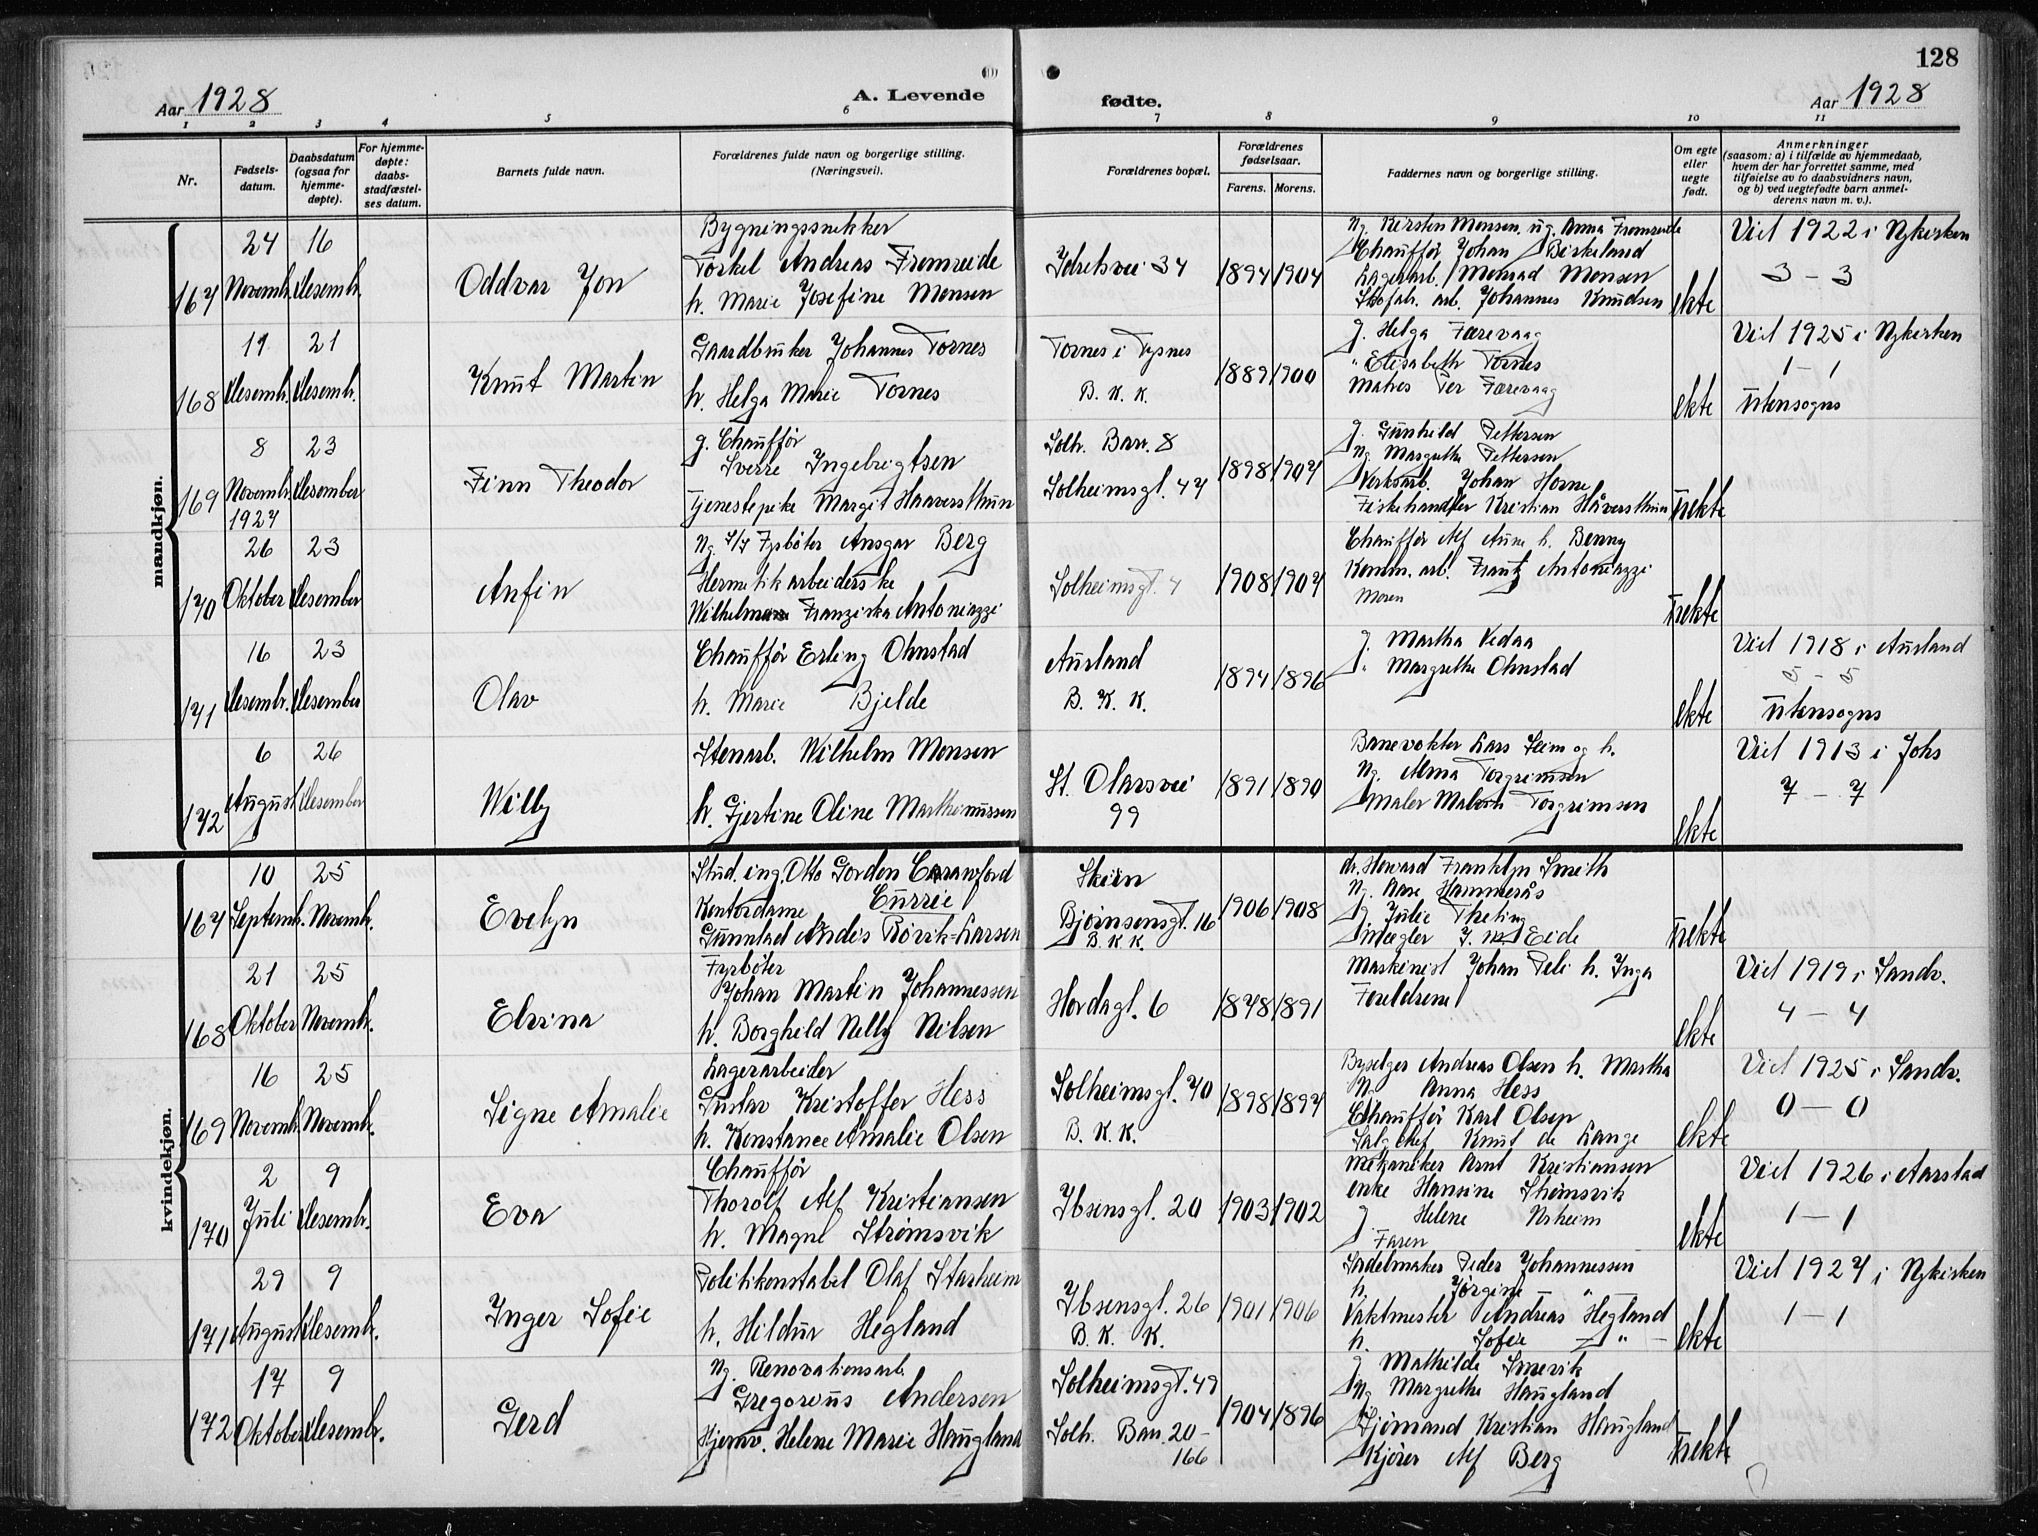 128
Aar 1928
A. Levende
fødte.
Aar 1928
1 2 3 4 5 6 7 8 9 10 11
Nr.
Fødsels-
datum.
Daabsdatum
(ogsaa for
hjemme-
døpte).
For hjemme-
døpte:
daabs-
stadfæstel-
ses datum.
Barnets fulde navn.
Forældrenes fulde navn og borgerlige stilling.
(Næringsvei).
Forældrenes bopæl.
Forældrenes
fødselsaar.
Farens. Morens.
Faddernes navn og borgerlige stilling.
Om egte
eller
uegte
født.
Anmerkninger
(saasom: a) i tilfælde av hjemmedaab,
hvem der har forrettet samme, med
tilføielse av to daabsvidners navn,
og b) ved uegtefødte barn anmel-
derens navn m. v.).
mandkjøn.
167
24 Novembr.
16 Desembr.
Oddvar Jon
Bygningssnikker
Torkel Andreas Fremreide
h. Marie Josefine Monsen
Idretsvei 34
1894 1904
Ng. Kirsten Monsen, ug. Anna Fremreide
Chauffør Johan Birkeland
Lagerarb. Monrad Monsen
Skofabr. arb. Johannes Knudsen
ekte
Viet 1922 i Nykirken
3 – 3
168
11 Desembr.
21 Desembr.
Knut Martin
Gaardbruker Johannes Tornes
h. Helga Marie Tornes
Tornes i Tysnes
B. K. K.
1889 1900
g. Helga Færevaag
" Elisabeth Tornes
Matros Per Færevaag
ekte
Viet 1925 i Nykirken
1 – 1
Utensogns
169
8 Novembr.
1927
23 Desember
Finn Theodor
g. Chauffør
Sverre Ingebrigtsen
Tjenestepike Margit Haaversthun
Solh. Barr. 8
Solheimsgt. 47
1898 1907
g. Gunhild Pettersen
Ng. Margrethe Pettersen
Verksarb. Johan Horne
Fiskehandler Kristian Håversthun
Uekte
170
26 Oktober
23 Desember
Anfin
Ng. Fyrbøter Ansgar Berg
Hermetikarbeiderske
Franziska Antoniazzi
Solheimsgt. 4
1908 1907
Chauffør Alf Aune h. Benny
Komm. arb. Frantz Antoniazzi
Moren
Uekte
171
16 Desembr.
23 Desember
Olav
Chauffør Erling Ohnstad
h. Marie Bjelde
Aurland
B. K. K.
1894 1896
g. Martha Vedaa
" Margrethe Ohnstad
ekte
Viet 1918 i Aurland
5 – 5
Utensogns
172
6 August
26 Desember
Willy
Stenarb. Wilhelm Monsen
h. Gjertine Oline Marthinussen
St. Olavsvei
99
1891 1890
Banevokter Lars Seim og h.
Ng. Alma Torgrimsen
Maler Torgrimsen
ekte
Viet 1913 i Johs
7 – 7
kvindekjøn.
167
10 Septemb.
25 Novembr.
Evelyn
Stud. ing. Otto Gordon Crawford
Currie
Kontordame
Gunnlad Andis Røvik-Larsen
Skien
Bjørnsensgt. 16
B. K. K.
1906 1908
dr. Howard Franklyn Smith
Ng. Aase Hammerås
g. Julie Theting
Megler J. M. Eide
Uekte
168
21 Oktober
25 Novembr.
Elvina
Fyrbøter
Johan Martin Johannessen
h. Borghild Nelly Nilsen
Hordagt. 6
1878 1891
Maskinist Johan h. Inga
Foreldrene
ekte
Viet 1919 i Sandv.
4 – 4
169
16 Novembr.
25 Novembr.
Signe Amalie
Lagerarbeider
Gustav Kristoffer Hess
h. Konstance Amalie Olsen
Solheimsgt. 70
B. K. K.
1898 1897
Byselger Andreas Olsen h. Martha
Ng. Anna Hess
Chauffør Karl Olsen
Salgchef Knut de Lange
ekte
Viet 1925 i Sandv.
0 – 0
170
2 Juli
9 Desembr.
Eva
Chauffør
Thorolf Alf Kristiansen
h. Magne Strømsvik
Ibsensgt. 20
1903 1902
Mekaniker Arnt Kristiansen
enke Hansine Strømsvik
g. Helene Askeim
Faren
ekte
Viet 1926 i Aarstad
1 – 1
171
29 August
9 Desembr.
Inger Sofie
Politikonstabel Olaf Starheim
h. Hildur Hegland
Ibsensgt. 26
B. K. K.
1901 1906
Sadelmaker Peder Johannessen
h. Jørgine "
Vaktmester Andreas Hegland
h. Sofie – " –
ekte
Viet 1927 i Nykirken
1 – 1
172
17 Oktober
9 Desembr.
Gerd
Ng. Renovationsarb.
Gregorius Andersen
Hjemv. Helene Marie Haugland
Solheimsgt. 49
Solh. Barr. 20 –
166
1904 1896
g. Mathilde Smevik
Ng Margrethe Haugland
Sjømand Kristian Haugland
Kjører Alf Berg
Uekte